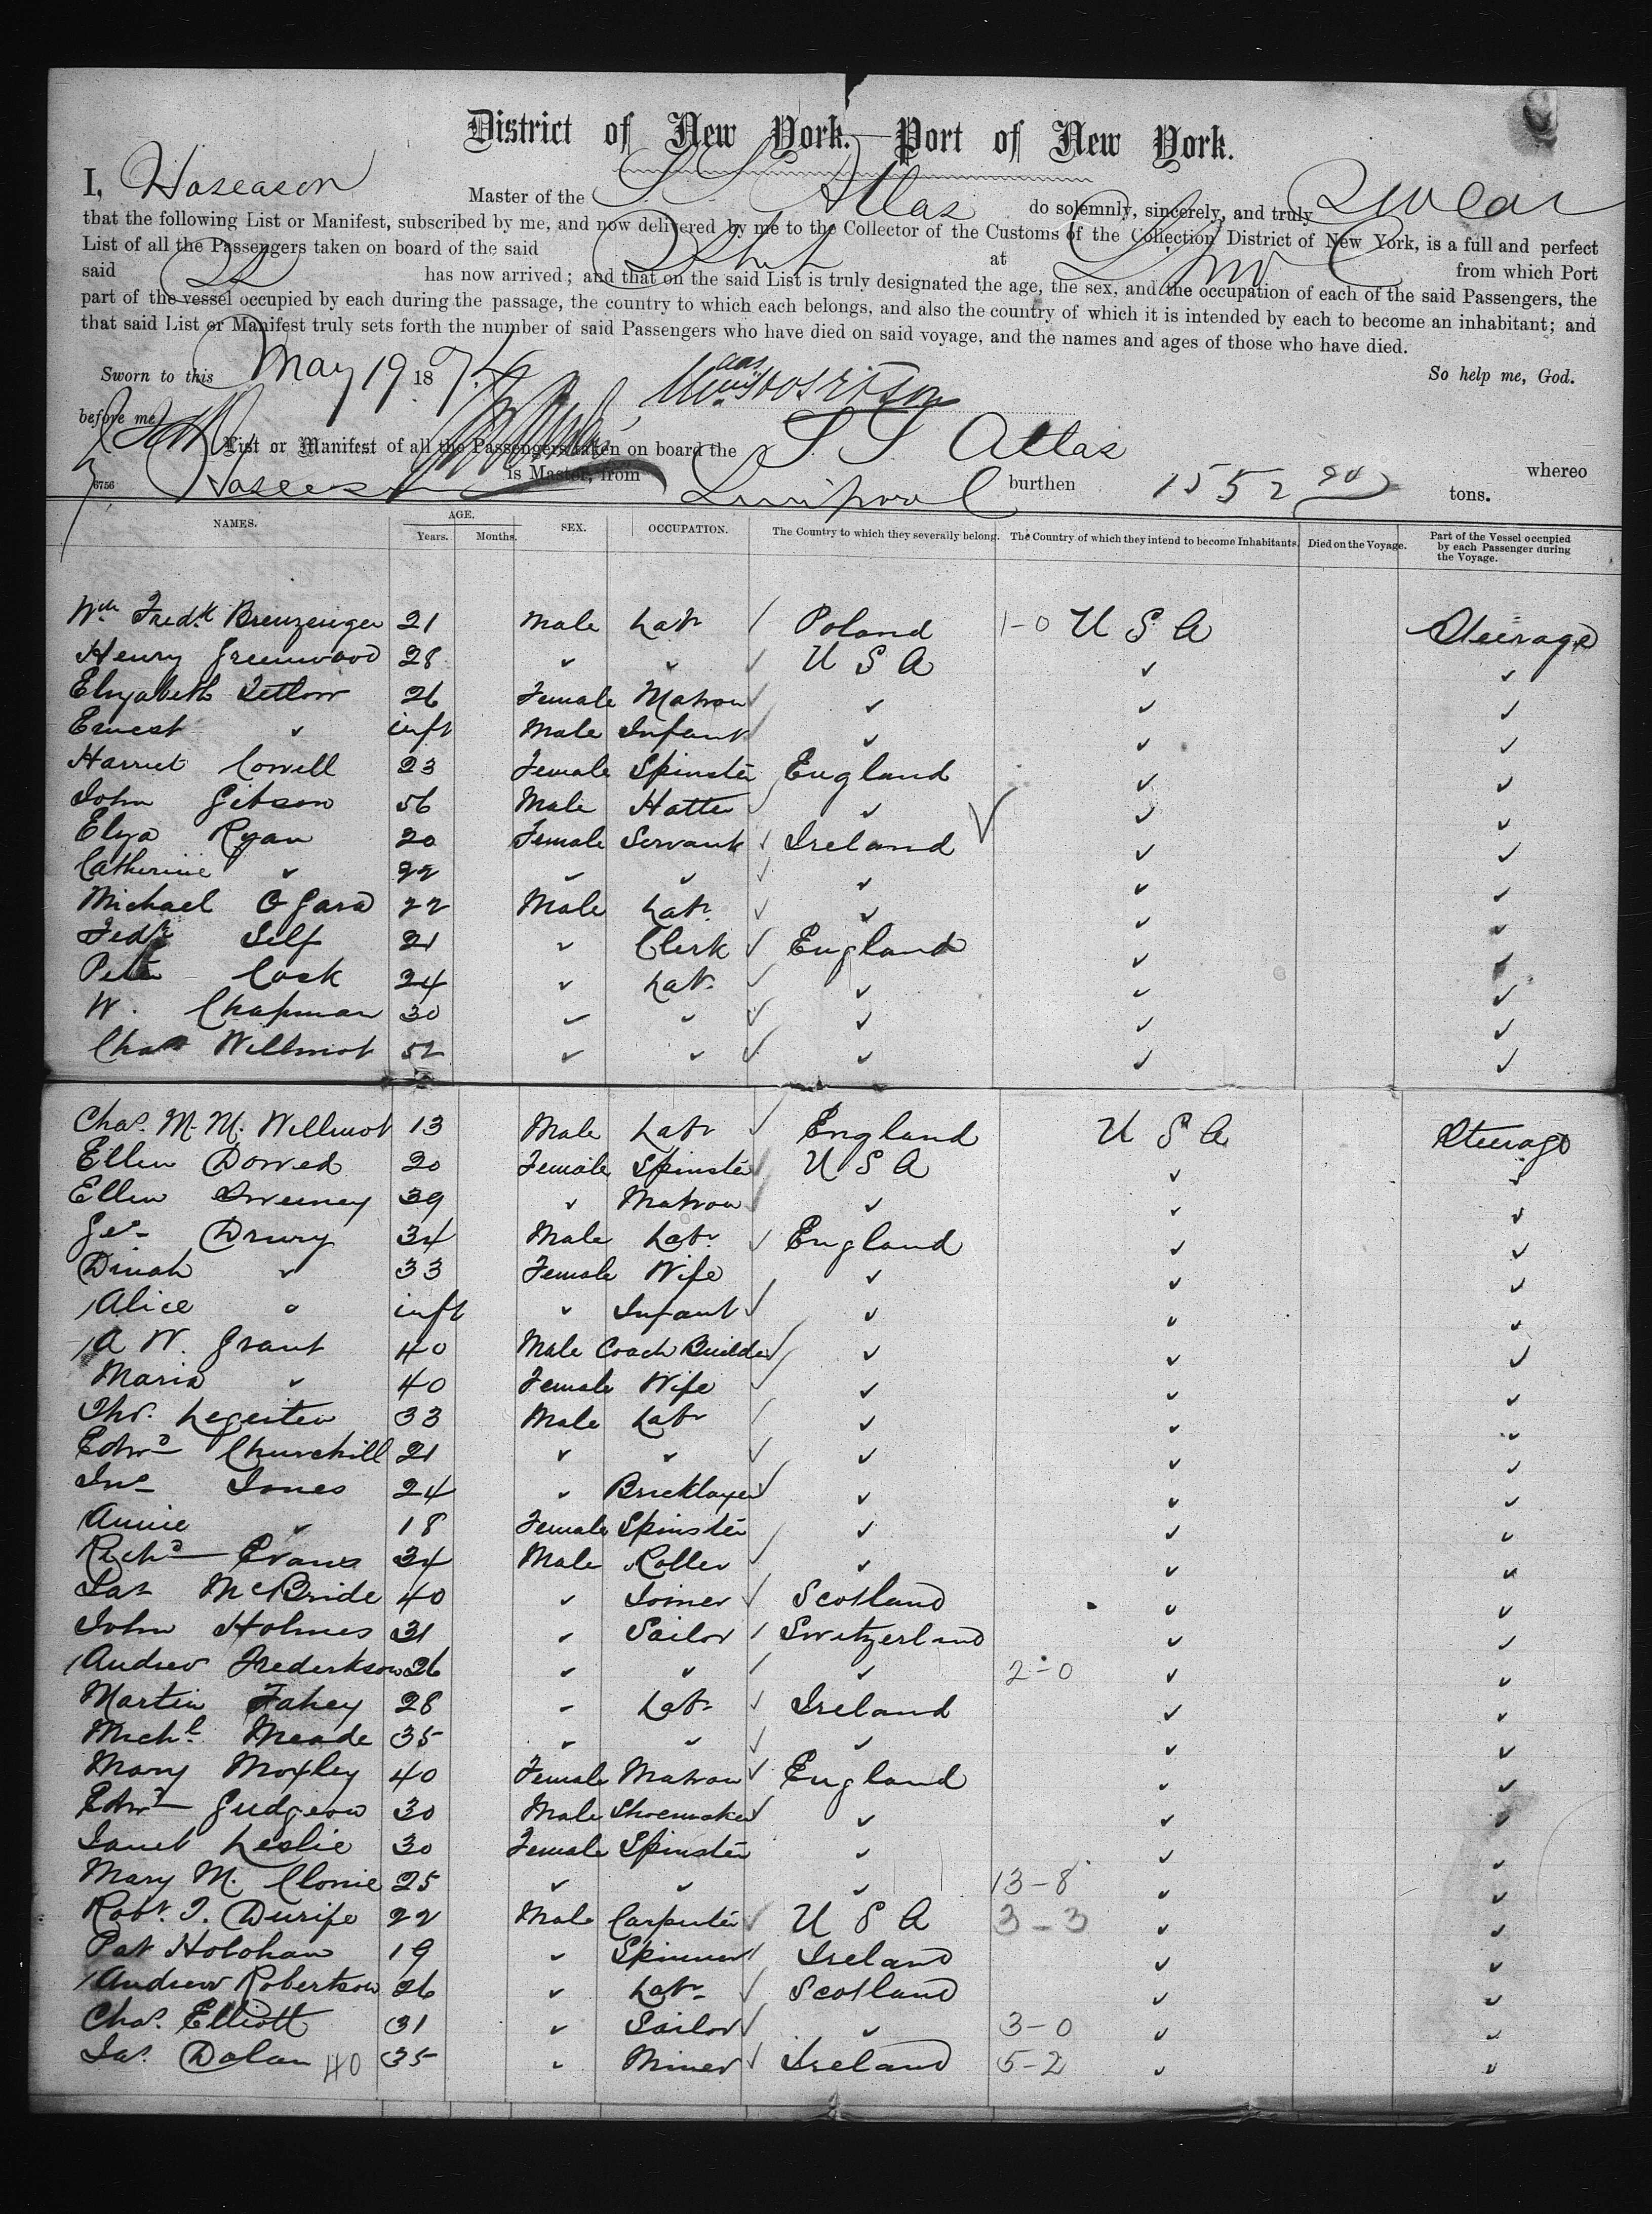 District of New York.—Port of New York.
I, Haseason Master of the S S Atlas do solemnly, sincerely, and truly Swear
that the following List or Manifest, subscribed by me, and now delivered by me to the Collector of the Customs of the Collection District of New York, is a full and perfect
List of all the Passengers taken on board of the said at from which Port
said has now arrived; and that on the said List is truly designated the age, the sex, and the occupation of each of the said Passengers, the
part of the vessel occupied by each during the passage, the country to which each belongs, and also the country of which it is intended by each to become an inhabitant; and
that said List or Manifest truly sets forth the number of said Passengers who have died on said voyage, and the names and ages of those who have died.
So help me, God.
Sworn to this May 19 1874
before me
List or Manifest of all the Passengers taken on board the S S Atlas whereo
6756 is Master, from Liverpool burthen 1552 94 tons.
NAMES. AGE. Years. Months. SEX. OCCUPATION. The Country to which they severally belong. The Country of which they intend to become Inhabitants. Died on the Voyage. Part of the Vessel occupied by each Passenger during the Voyage.
Wm Fredk Brenzenger 21 Male Labr Poland 1-0 U S A Steerage
Henry Greenwood 28 " " U S A " "
Elizabeth Tetlow 26 Female Matron " " "
Ernest " inft Male Infant " " "
Harriet Cowell 23 Female Spinster England " "
John Gibson 56 Male Hatter " " "
Eliza Ryan 20 Female Servant Ireland " "
Catherine " 22 " " " " "
Michael O Gara 22 Male Labr " " "
Fedk Self 21 " Clerk England " "
Peter Cock 24 " Labr " " "
W. Chapman 30 " " " " "
Chas Willmot 52 " " " " "
Chas. M. M. Willmot 13 Male Labr England U S A Steerage
Ellen Dowed 20 Female Spinster U S A " "
Ellen Sweeney 39 " Matron " " "
Geo Drury 34 Male Labr England " "
Dinah " 33 Female Wife " " "
Alice " inft " Infant " " "
A W. Grant 40 Male Coach Builder " " "
Maria " 40 Female Wife " " "
Thos. Legeiten 33 Male Labr " " "
Edwd Churchill 21 " " " " "
Jno Jones 24 " Bricklayer " " "
Annie " 18 Female Spinster " " "
Richd Evans 34 Male Roller " " "
Jas McBride 40 " Joiner Scotland " "
John Holmes 31 " Sailor Switzerland " "
Andrew Frederkson 26 " " " 2-0 " "
Martin Fahey 28 " Labr Ireland " "
Michl Meade 35 " " " " "
Mary Moxley 40 Female Matron England " "
Edwd Gudgeon 30 Male Shoemaker " " "
Janet Leslie 30 Female Spinster " " "
Mary M. Clonie 25 " " " 13-8 " "
Robt. J. Durife 22 Male Carpenter U S A 3-3 " "
Pat Holohan 19 " Spinner Ireland " "
Andrew Robertson 26 " Labr Scotland " "
Chas. Elliott 31 " Sailor " 3-0 " "
Jas. Dolan 40 35 " Miner Ireland 5-2 " "